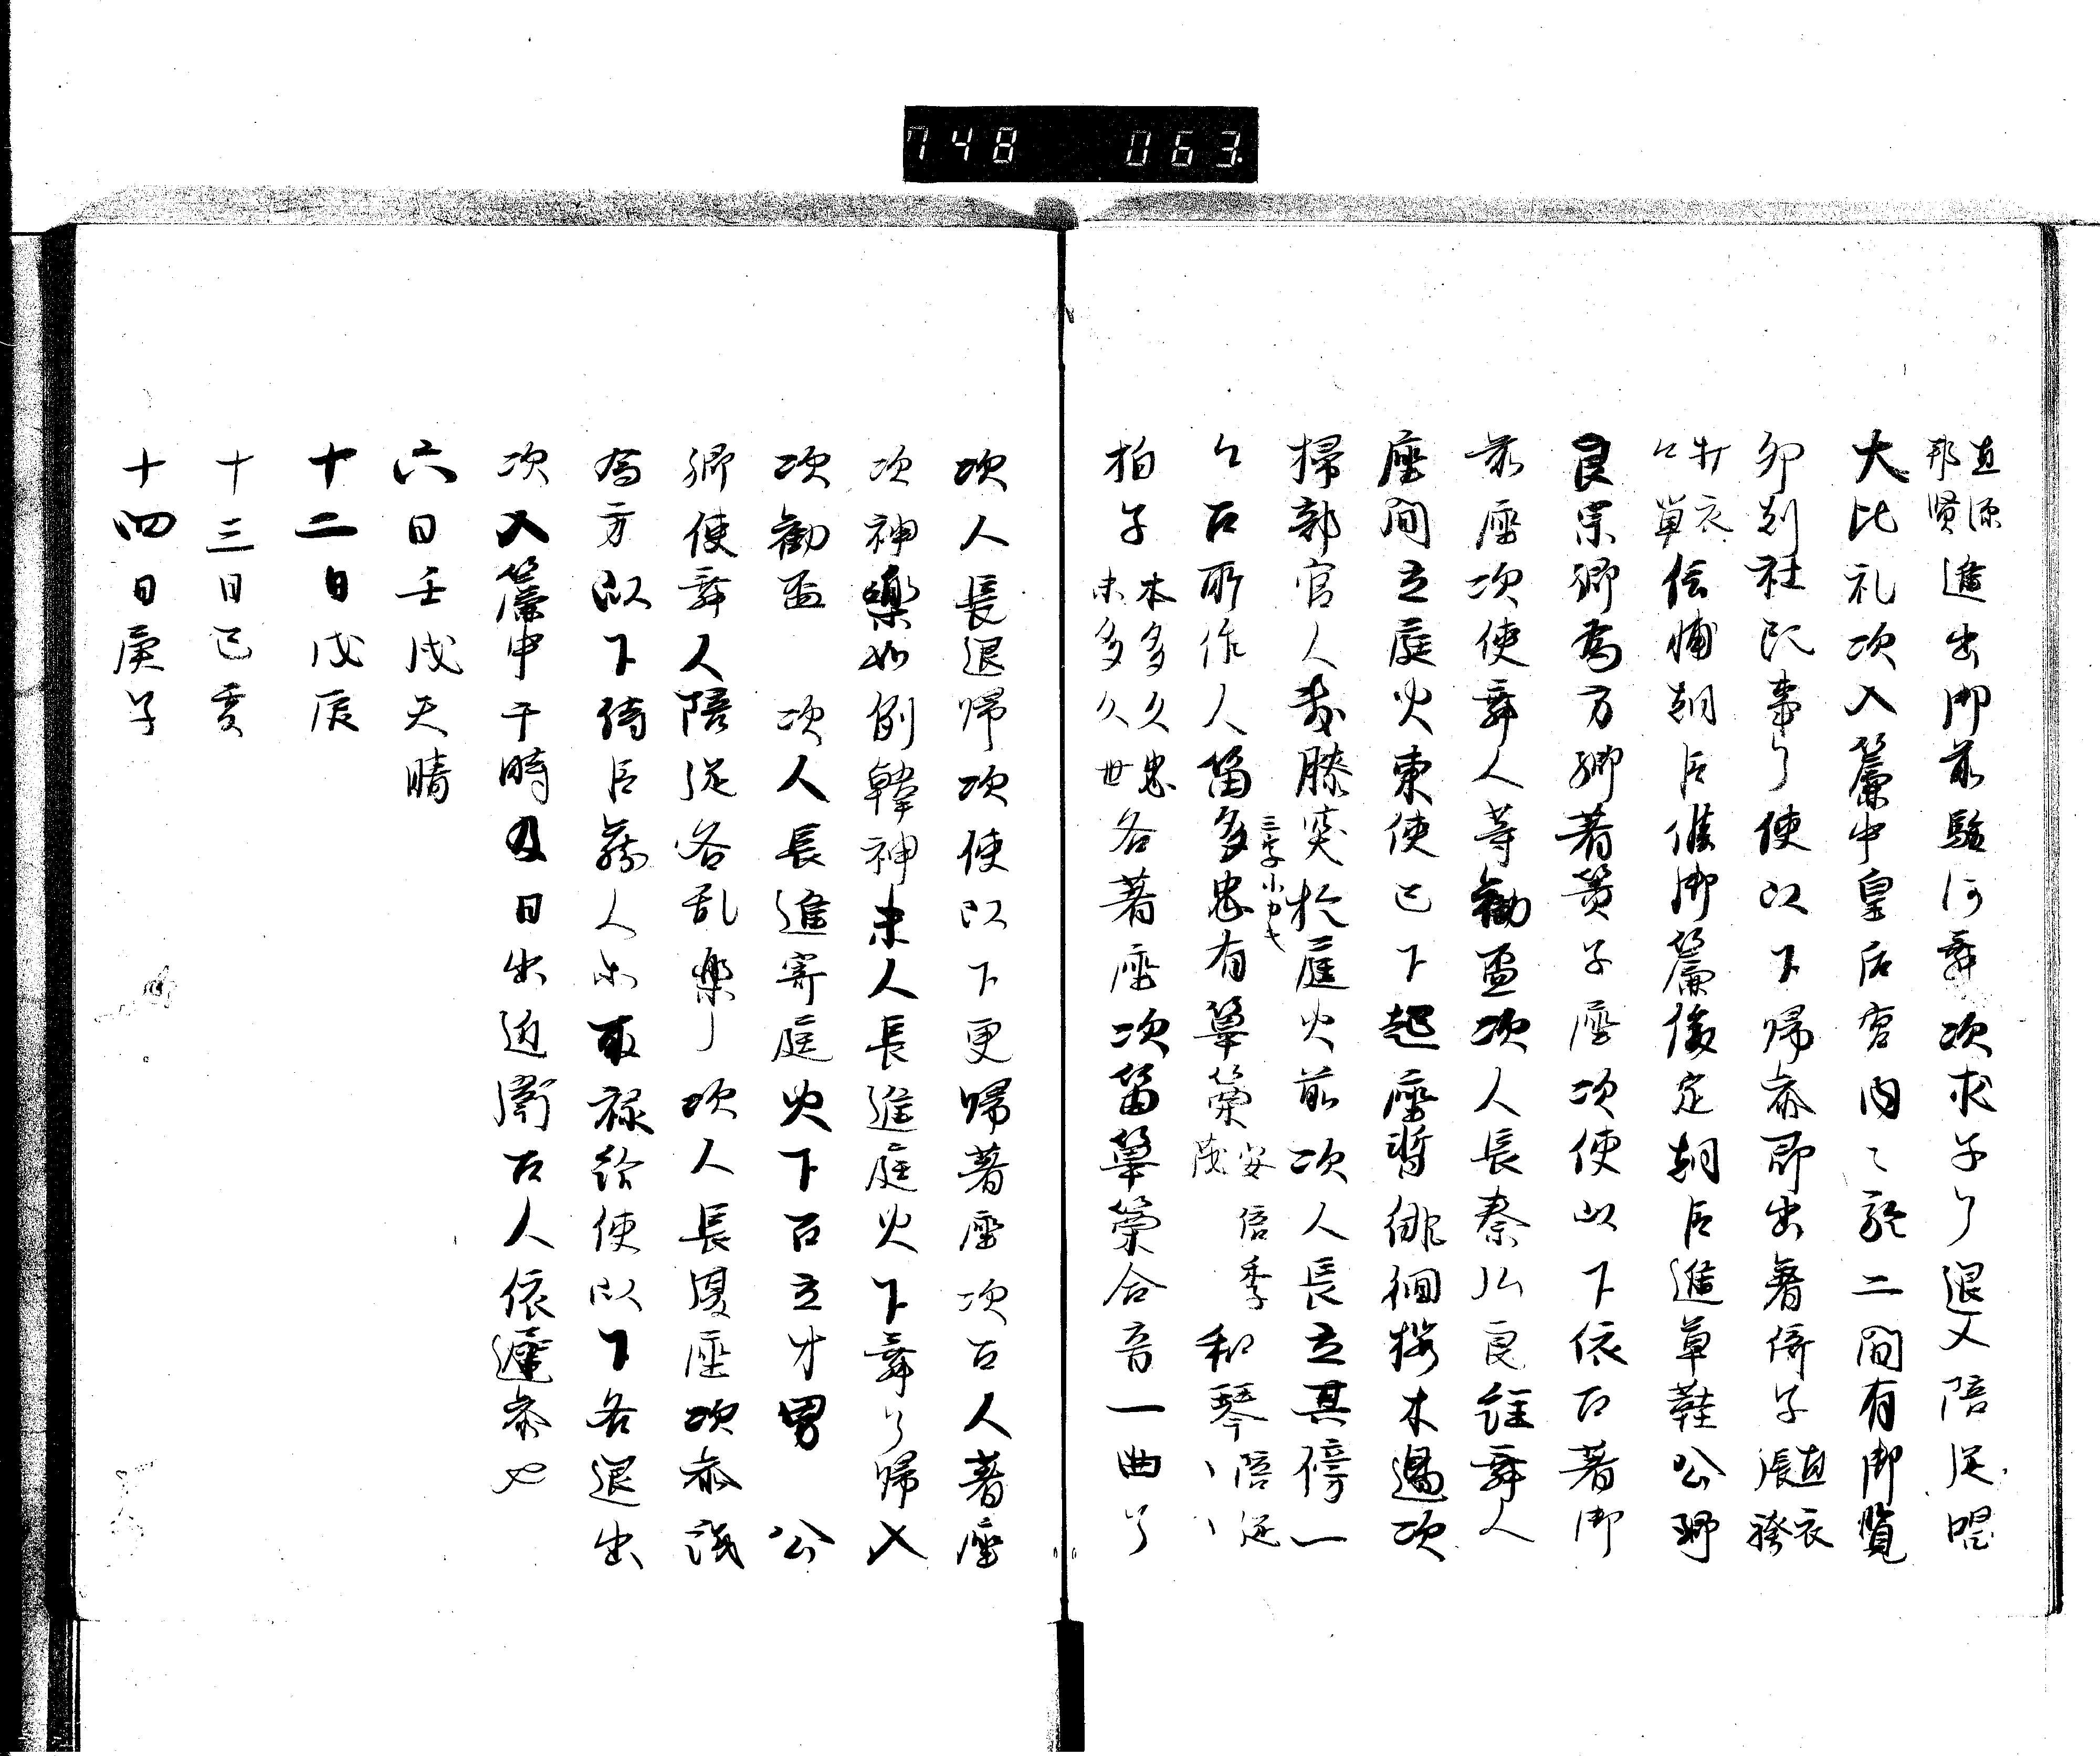 748 063
直源
邦賢進出御前駿河舞次求子了退入陪従唱
大比礼次入簾中皇后宮内々聴二間有御覧
卯刻社頭事了使以下帰参即出著倚子直衣張袴
打衣
々単信輔朝臣候御簾俊定朝臣進草鞋公卿
良宗卿為方卿著簀子座次使以下依召著御
前座次使舞人等勧盃次人長秦弘良経舞人
座間立庭火東使已下起座暫俳徊掖木邊次
掃部官人敷膝突於庭火前次人長立其傍一
々召所作人笛多忠有篳篥安倍季茂和琴陪従、、
三字小カキ
拍子本多久忠末多久世各著座次笛篳篥合音一曲了
次人長退帰次使以下更帰著座次召人著座
次神樂如例韓神末人長進庭火下舞了帰入
次勧盃 次人長進寄庭火下召立才男 公
卿使舞人陪従各乱樂了次人長復座次参議
為方以下侍臣蔵人等取禄給使以下各退出
次入簾中于時及日出近衛召人依遅参也
六日壬戌天晴
十二日戊辰
十三日己亥
十四日庚子